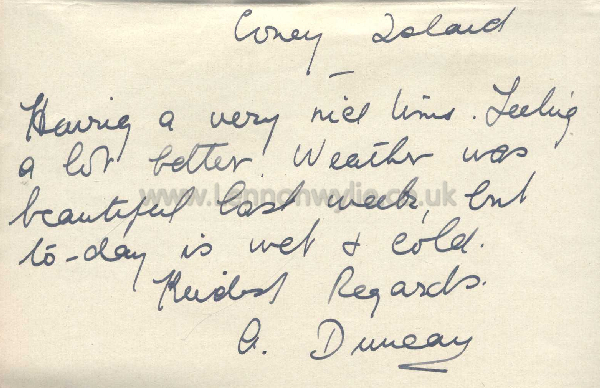 Coney Island
Having a very nice time. Feeling
a lot better. Weather was
www.Lennonwylie.co.uk
beautiful last week, but
to-day is wet & cold.
Kindest Regards.
A. Duncan